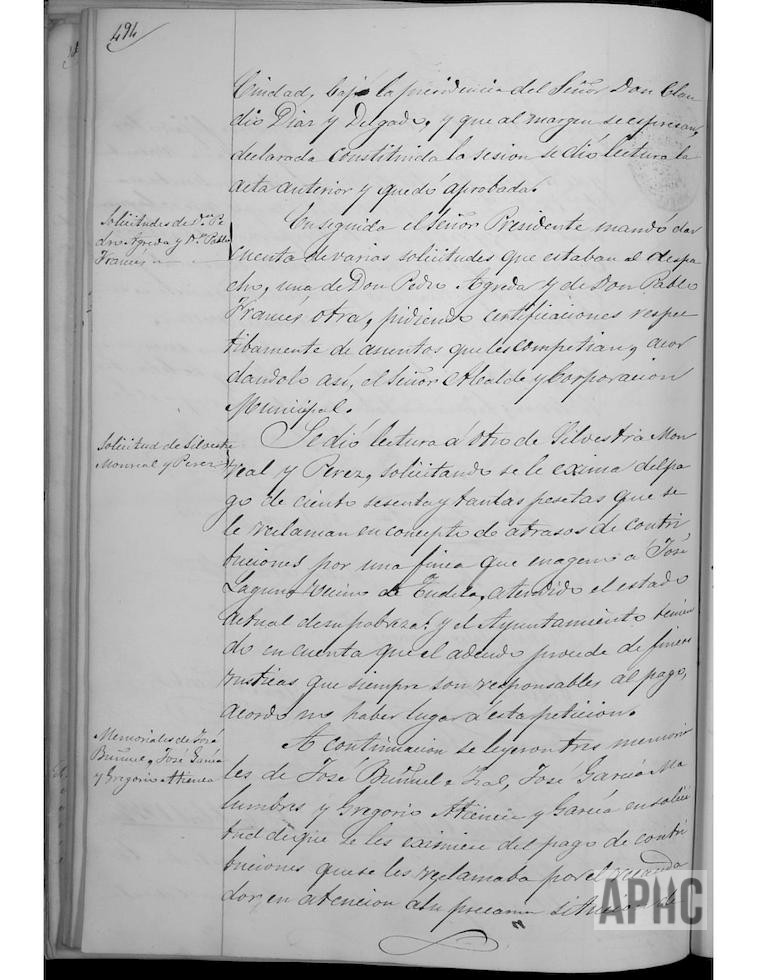 494
Ciudad, bajo la presidencia del Señor Don Clau
dio Diaz y Delgado, y que al margen se espresan,
declarada constituida la sesion se dió lectura la
acta anterior y quedó aprobada.
Solicitudes de Dn Pe
dro Agreda y Dn Pablo
Francés
Enseguida el Señor Presidente mandó dar
cuenta de varias solicitudes que estaban al despa
cho, una de Don Pedro Agreda y de Don Pablo
Francés otra, pidiendo certificaciones respec
tibamente de asuntos que les competian, acor
dandolo así, el Señor Alcalde y Corporacion
Municipal.
Solicitud de Silvestre
Monreal y Perez
Se dió lectura á otro de Silvestra Mon
real y Perez, solicitando se le exima del pa
go de ciento sesenta y tantas pesetas que se
le reclaman en concepto de atrasos de contri
buciones por una finca que enageno á José
Laguna vecino de Tudela, atendido el estado
actual de su pobreza; y el Ayuntamiento tenien
do en cuenta que el adeudo procede de fincas
rusticas que siempre son responsables al pago,
acordo no haber lugar á esta peticion.
Memoriales de José
Buñuel, José García
y Gregorio Atienza
A continuacion se leyeron tres memoria
les de José Buñuel Zral, José García Ma
lumbres y Gregorio Atienza y García en solici
tud de que se les eximiese del pago de contri
buciones que se les reclamaba por el recauda
dor, en atencion a su precaria situacion de
APHC